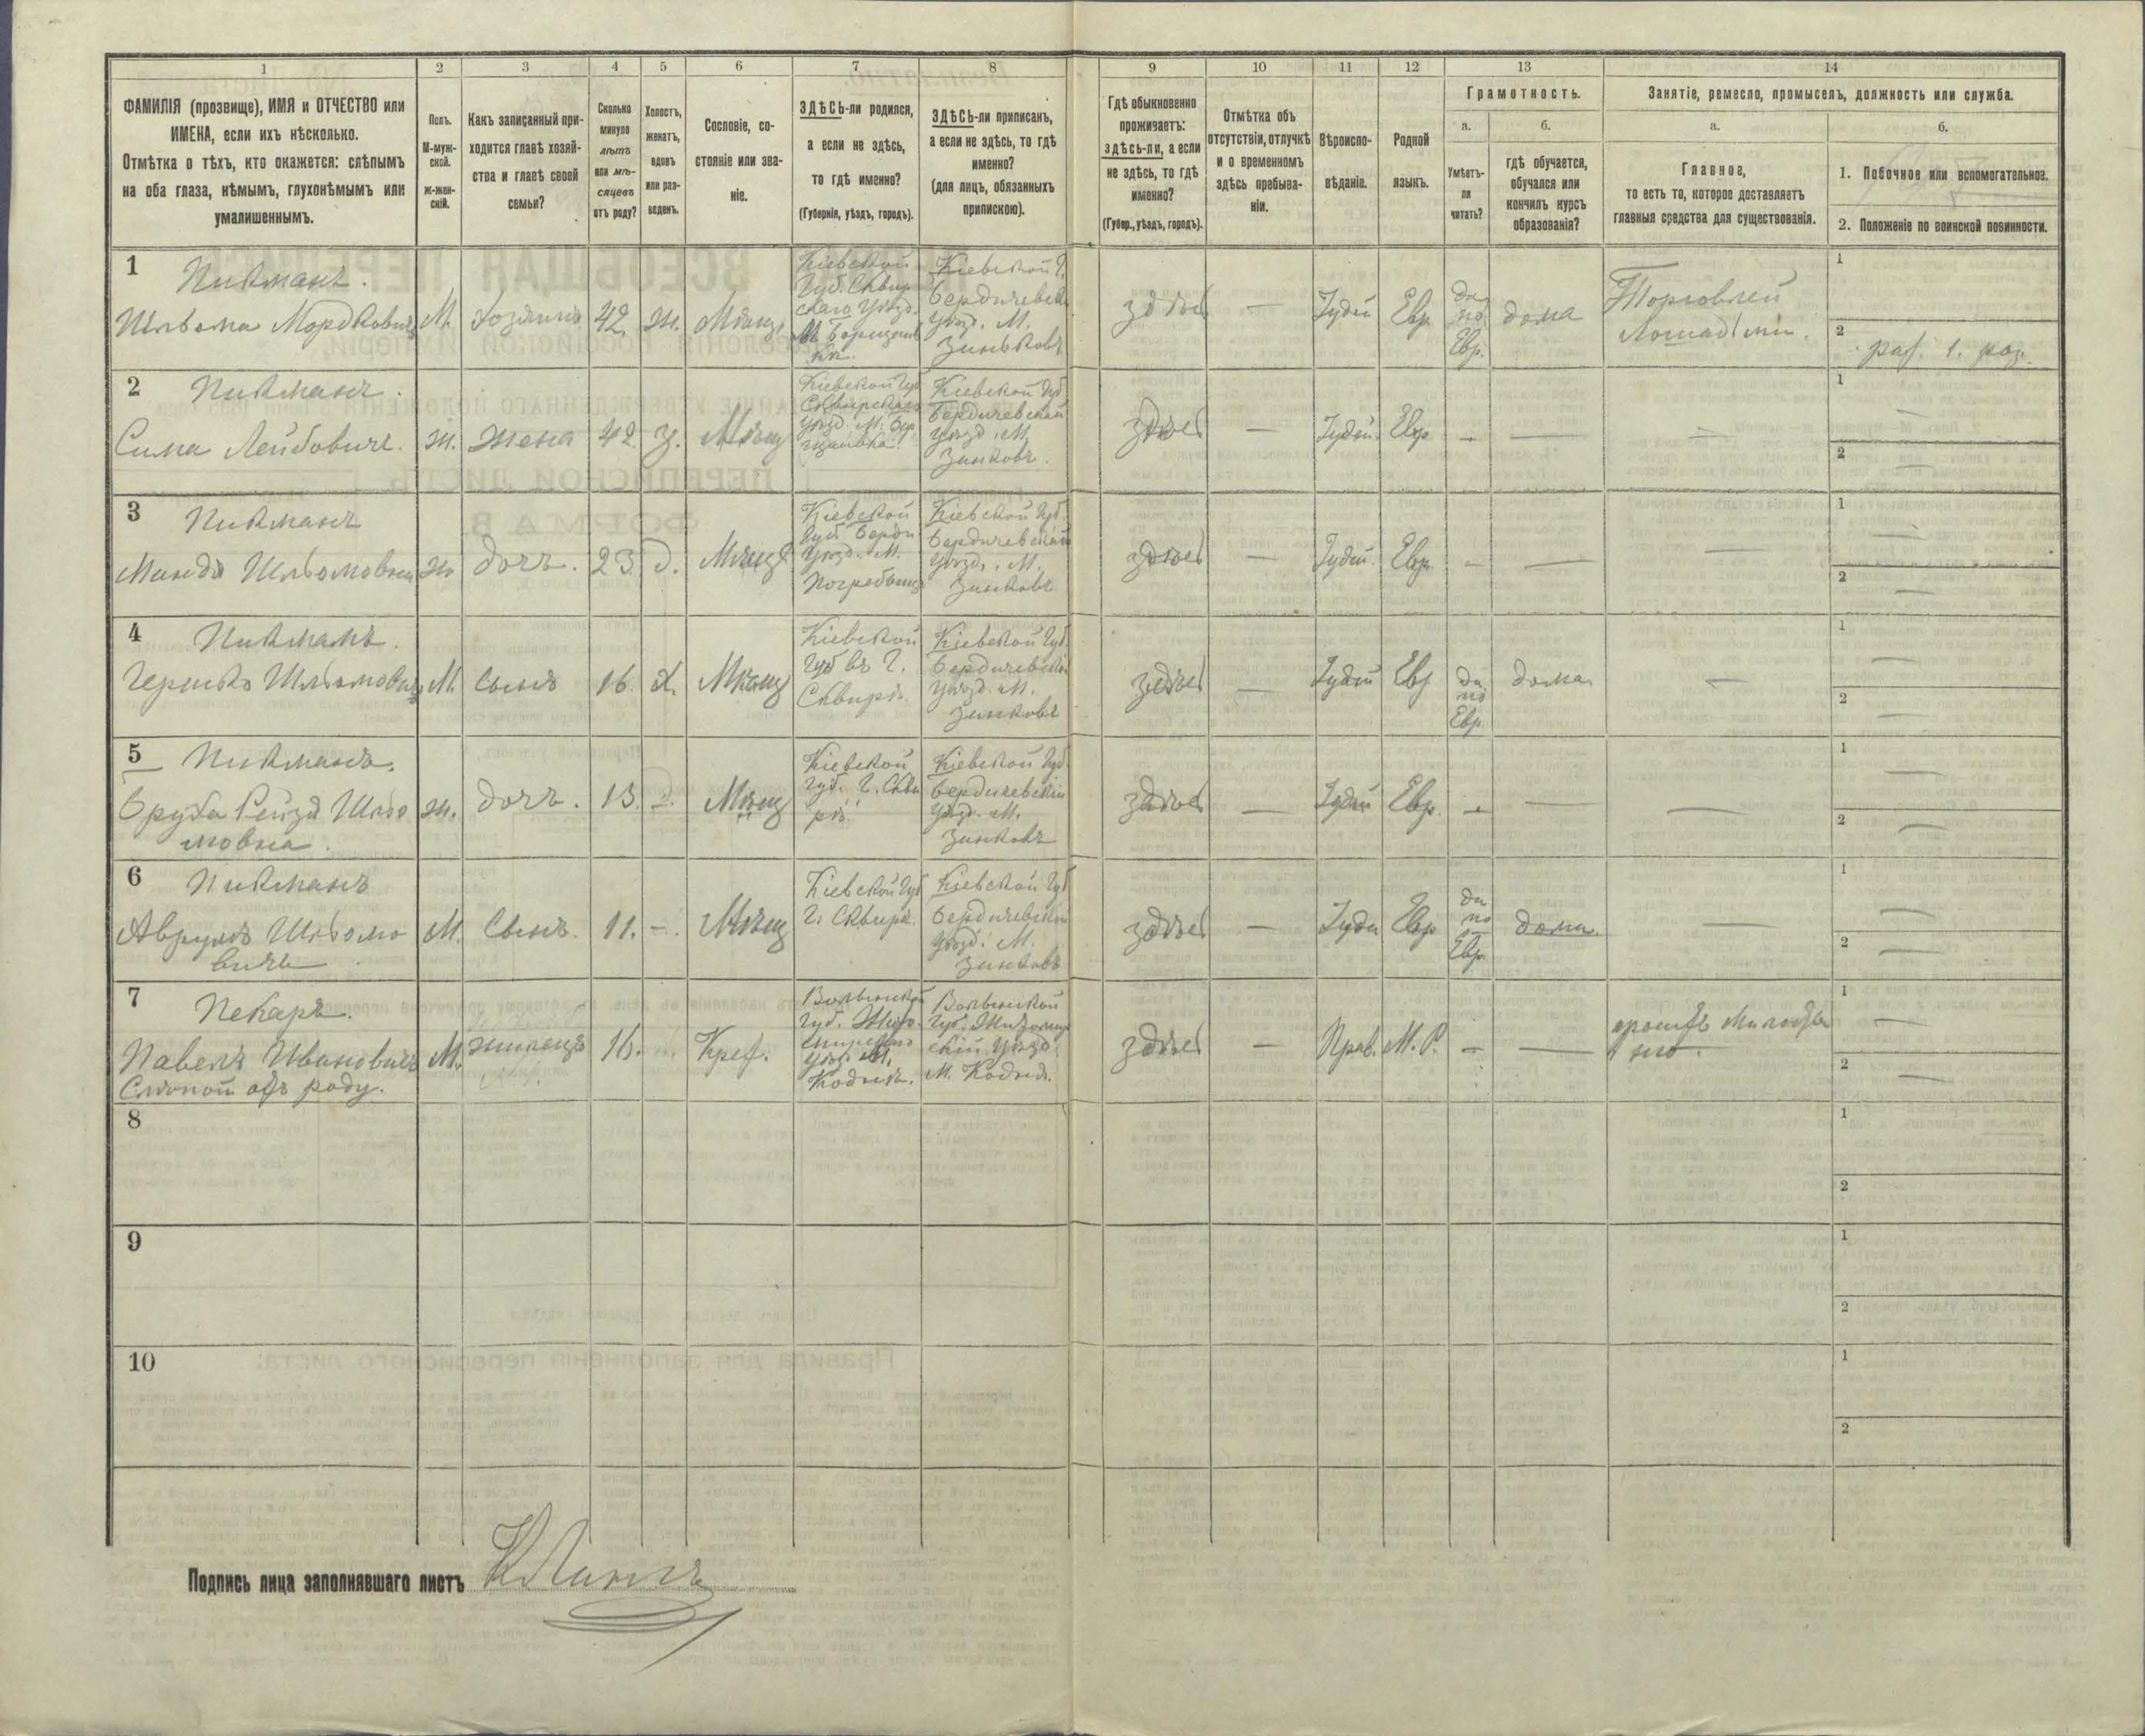 1
2
3
4
5
6
7
8
9
10
11
12
13
14
ФАМИЛІЯ (прозвище), ИМЯ и ОТЧЕСТВО или
ИМЕНА, если ихъ нѣсколько.
Отмѣтка о тѣхъ, кто окажется: слѣпымъ
на оба глаза, нѣмымъ, глухонѣмымъ или
умалишеннымъ.
Полъ.
М-муж-
ской.
ж-жен-
скій.
Какъ записанный при-
ходится главѣ хозяй-
ства и главѣ своей
семьи?
Сколько
минуло
лѣтъ
или мѣ-
сяцевъ
отъ роду?
Холостъ,
женатъ,
вдовъ
или раз-
веденъ.
Сословіе, со-
стояніе или зва-
ніе.
ЗДѢСЬ-ли родился,
а если не здѣсь,
то гдѣ именно?
(Губернія, уѣздъ, городъ).
ЗДѢСЬ-ли приписанъ,
а если не здѣсь, то гдѣ
именно?
(для лицъ, обязанныхъ
припискою).
Гдѣ обыкновенно
проживаетъ:
здѣсь-ли, а если
не здѣсь, то гдѣ
именно?
(Губер., уѣздъ, городъ).
Отмѣтка объ
отсутствіи, отлучкѣ
и о временномъ
здѣсь пребыва-
ніи.
Вѣроиспо-
вѣданіе.
Родной
языкъ.
Грамотность.
а.
Умѣетъ-
ли
читать?
б.
гдѣ обучается,
обучался или
кончилъ курсъ
образованія?
Занятіе, ремесло, промыселъ, должность или служба.
а.
Главное,
то есть то, которое доставляетъ
главныя средства для существованія.
б.
1. Побочное или вспомогательное.
2. Положеніе по воинской повинности.
1
Пикманъ.
Шльома Мордковичъ
М.
Хозяинъ
42
ж.
Мѣщ.
Кіевской
Губ. Сквир
скаго Уѣзд.
Кіевской Г.
Бердичевск
Уѣзд. М.
Зиньковъ
здѣсь
—
Іудей
Евр
да
по
Евр.
дома
Торговлей
Лошадьми.
1
2
2
Пикманъ.
Сима Лейбовичъ.
ж.
Жена
42
З.
Мѣщ
Кіевской Губ
Сквирскаго
Уѣзд. М.
Кіевской Губ
Бердичевской
Уѣзд. М.
Зинковъ.
здѣсь
—
Іудей.
Евр
—
—
—
1
—
2
—
3
Пикманъ
ж
дочъ.
23
д.
Мѣщ
Кіевской
Губ. Берди
Уѣзд. М.
Погребыще
Кіевской Губ.
Бердичевской
Уѣзд. М.
Зинковъ
здѣсь
—
Іудей
Евр.
—
—
—
1
—
2
—
4
Пикманъ.
Гершко Шльомовичъ
М.
Сынъ
16.
Х.
Мѣщ
Кіевской
Губ въ Г.
Сквирѣ.
Кіевской Губ.
Бердичевской
Уѣзд. М.
Зинковъ
здѣсь
—
Іудей
Евр
да
по
Евр.
дома.
—
1
2
—
5
Пикманъ.
Бруха Рейзя Шльо
мовна.
ж.
дочъ.
13.
Мѣщ
Кіевской
Губ. Г. Скви
рѣ.
Кіевской Губ
Бердичевскій
Уѣзд. М.
Зинковъ
здѣсь
—
Іудей
Евр.
—
—
—
1
—
2
—
6
Пикманъ
Аврумъ Шльомо
вичъ
М.
Сынъ.
11.
—
Мѣщ
Кіевской Губ
Г. Сквирѣ.
Кіевской Губ
Бердичевскій
Уѣзд. М.
Зинковъ
здѣсь
—
Іудей
Евр
да
по
Евр.
дома.
—
1
—
2
—
7
Пекарь.
Павелъ Ивановичъ
Слѣпой отъ роду.
М.
жилецъ
16.
Крес.
Волынской
Губ. Жито
мирскаго
Уѣзд. М.
Кодня.
Волынской
Губ. Житомир
скій Уѣзд.
М. Кодня.
здѣсь
—
Прав.
М. Р.
—
—
проситъ Милосты
ню.
1
—
2
—
8
1
2
9
1
2
10
1
2
Подпись лица заполнявшаго листъ